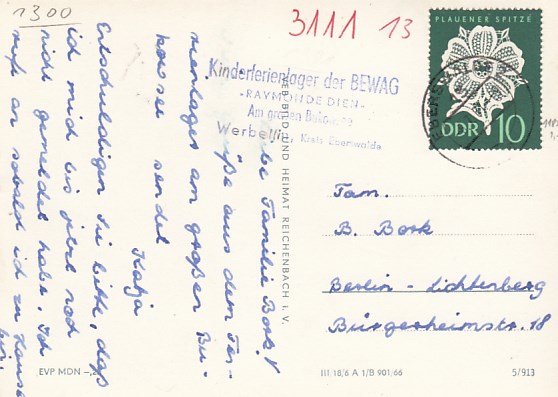 1300
3111 13
PLAUENER SPITZE
DDR 10
Kinderferienlager der BEWAG
- RAYMONDE DIEN -
Am großen
Werbellin, Kreis Eberswalde
BILD UND HEIMAT REICHENBACH I. V.
Liebe Familie Bork!
Grüße aus dem Fer-
rienlager am großen Bu-
kowsee sendet
Katja
Entschuldigen Sie bitte, daß
ich mich bis jetzt noch
nicht gemeldet habe. Ich
rufe an sobald ich zu Hause
bin.
Fam.
B. Bork
Berlin - Lichtenberg
Bürgerheimstr. 18
EVP MDN -,
III 18/6 A 1/B 901/66
5/913